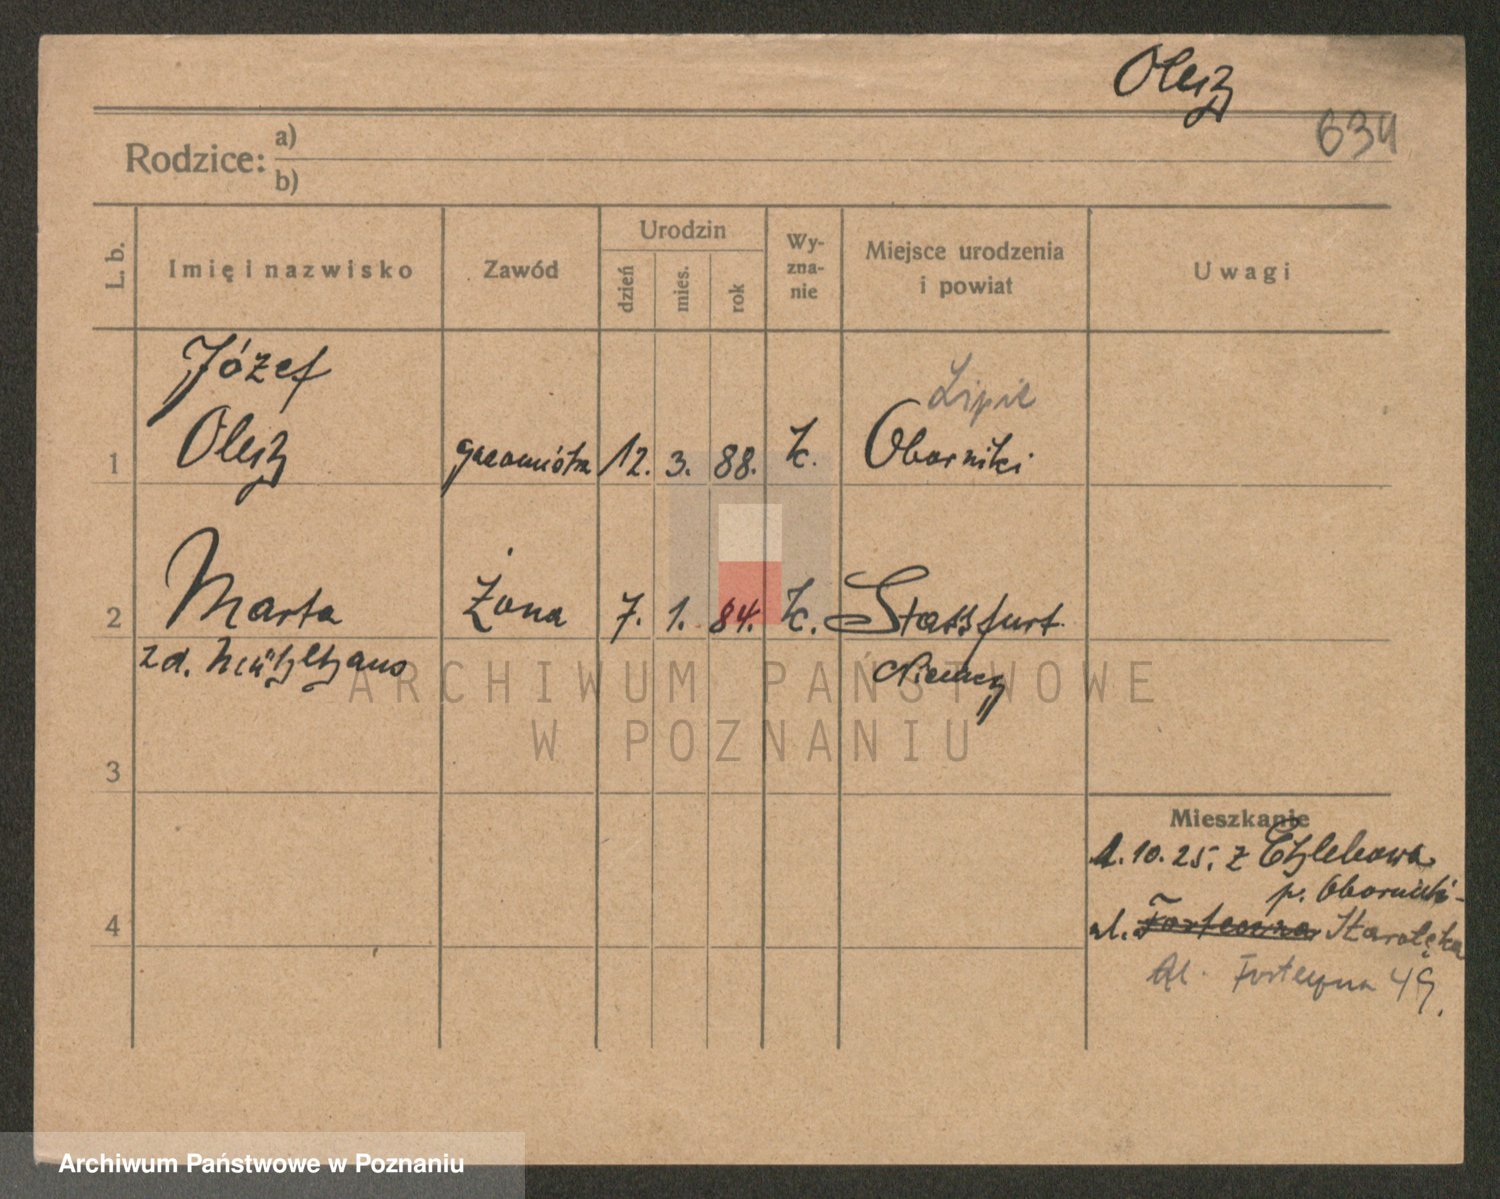 Olejz
634
Rodzice: a)
b)
L. b.
Imię i nazwisko
Zawód
Urodzin
dzień
mies.
rok
Wy-
zna-
nie
Miejsce urodzenia
i powiat
Uwagi
Józef
Lipie
1 Olejz 12. 3. 88. k. Oborniki
2 Marta Żona 7. 1. 84. k. Stassfurt
zd. Niemcy
3
4
Mieszkanie
1. 10. 25. z Chlebowa
p. Oborniki
ul. Forteczna Starołęka
ul. Forteczna 49.
ARCHIWUM PAŃSTWOWE
W POZNANIU
Archiwum Państwowe w Poznaniu